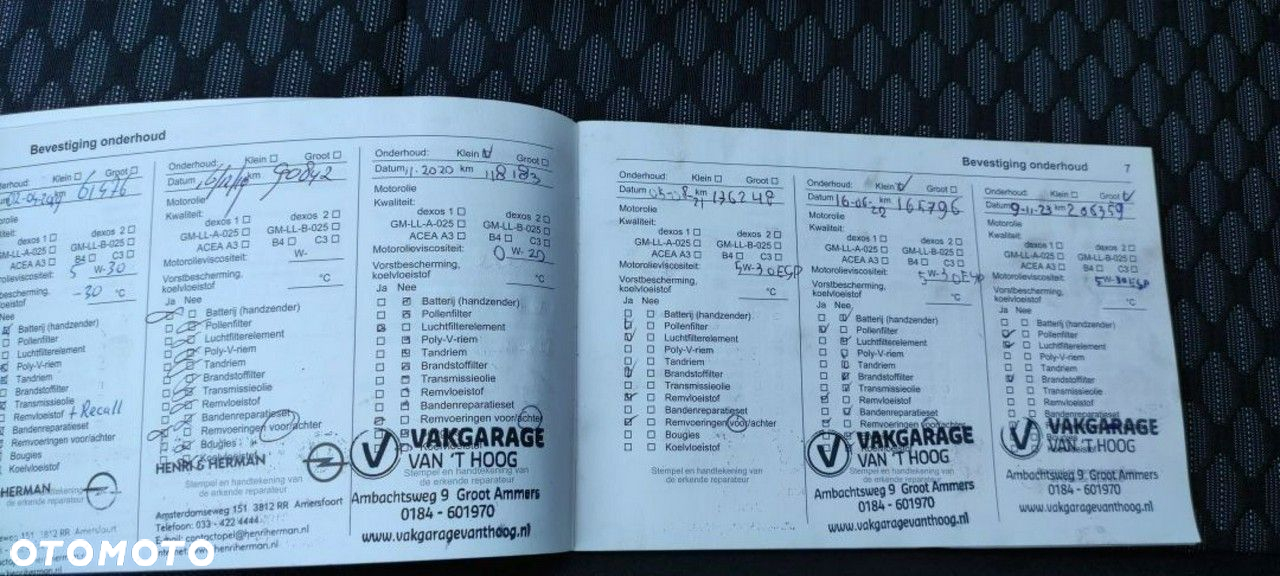 Bevestiging onderhoud
Klein Groot
km 61476
dexos 1
GM-LL-A-025
ACEA A3 B4
5 W-30
-30 °C
Nee
Batterij (handzender)
Pollenfilter
Luchtfilterelement
Poly-V-riem
Tandriem
Brandstoffilter
Transmissieolie
Remvloeistof + Recall
Bandenreparatieset
Remvoeringen voor/achter
Bougies
Koelvloeistof
HERMAN
151 3812 RR Amersfoort
Onderhoud: Klein Groot
Datum km 90842
Motorolie
Kwaliteit:
dexos 1 dexos 2
GM-LL-A-025 GM-LL-B-025
ACEA A3 B4 C3
Motorolieviscositeit: W-
Vorstbescherming, koelvloeistof °C
Ja Nee
Batterij (handzender)
Pollenfilter
Luchtfilterelement
Poly-V-riem
Tandriem
Brandstoffilter
Transmissieolie
Remvloeistof
Bandenreparatieset
Remvoeringen voor/achter
Bougies
HENRI & HERMAN
Stempel en handtekening van
de erkende reparateur
Amsterdamseweg 151 3812 RR Amersfoort
Telefoon: 033 - 422 4444
E-mail: contactopel@henriherman.nl
Onderhoud: Klein Groot
Datum 11.2020 km 118183
Motorolie
Kwaliteit:
dexos 1 dexos 2
GM-LL-A-025 GM-LL-B-025
ACEA A3 B4 C3
Motorolieviscositeit: 0 W-20
Vorstbescherming,
koelvloeistof °C
Ja Nee
Batterij (handzender)
Pollenfilter
Luchtfilterelement
Poly-V-riem
Tandriem
Brandstoffilter
Transmissieolie
Remvloeistof
Bandenreparatieset
Remvoeringen voor/achter
VAKGARAGE
VAN 'T HOOG
Stempel en handtekening van
de erkende reparateur
Ambachtsweg 9 Groot Ammers
0184 - 601970
www.vakgaragevanthoog.nl
Bevestiging onderhoud 7
Onderhoud: Klein Groot
Datum km
Motorolie
Kwaliteit:
dexos 1 dexos 2
GM-LL-A-025 GM-LL-B-025
ACEA A3 B4 C3
Motorolieviscositeit: 5W-30 ESP
Vorstbescherming,
koelvloeistof °C
Ja Nee
Batterij (handzender)
Pollenfilter
Luchtfilterelement
Poly-V-riem
Tandriem
Brandstoffilter
Transmissieolie
Remvloeistof
Bandenreparatieset
Remvoeringen voor/achter
Bougies
Koelvloeistof
Stempel en handtekening van
de erkende reparateur
Onderhoud: Klein Groot
Datum 16-06-22 km 165796
Motorolie
Kwaliteit:
dexos 1 dexos 2
GM-LL-A-025 GM-LL-B-025
ACEA A3 B4 C3
Motorolieviscositeit: 5W-30 ESP
Vorstbescherming,
koelvloeistof °C
Ja Nee
Batterij (handzender)
Pollenfilter
Luchtfilterelement
Poly-V-riem
Tandriem
Brandstoffilter
Transmissieolie
Remvloeistof
Bandenreparatieset
Remvoeringen voor/achter
VAKGARAGE
VAN 'T HOOG
Ambachtsweg 9 Groot Ammers
0184 - 601970
www.vakgaragevanthoog.nl
Onderhoud: Klein Groot
Datum 9-11-23 km 206359
Motorolie
Kwaliteit:
dexos 1 dexos 2
GM-LL-A-025 GM-LL-B-025
ACEA A3 B4 C3
Motorolieviscositeit: 5W-30 ESP
Vorstbescherming,
koelvloeistof °C
Ja Nee
Batterij (handzender)
Pollenfilter
Luchtfilterelement
Poly-V-riem
Tandriem
Brandstoffilter
Transmissieolie
Remvloeistof
Bandenreparatieset
VAKGARAGE
VAN 'T HOOG
Ambachtsweg 9 Groot Ammers
0184 - 601970
www.vakgaragevanthoog.nl
OTOMOTO